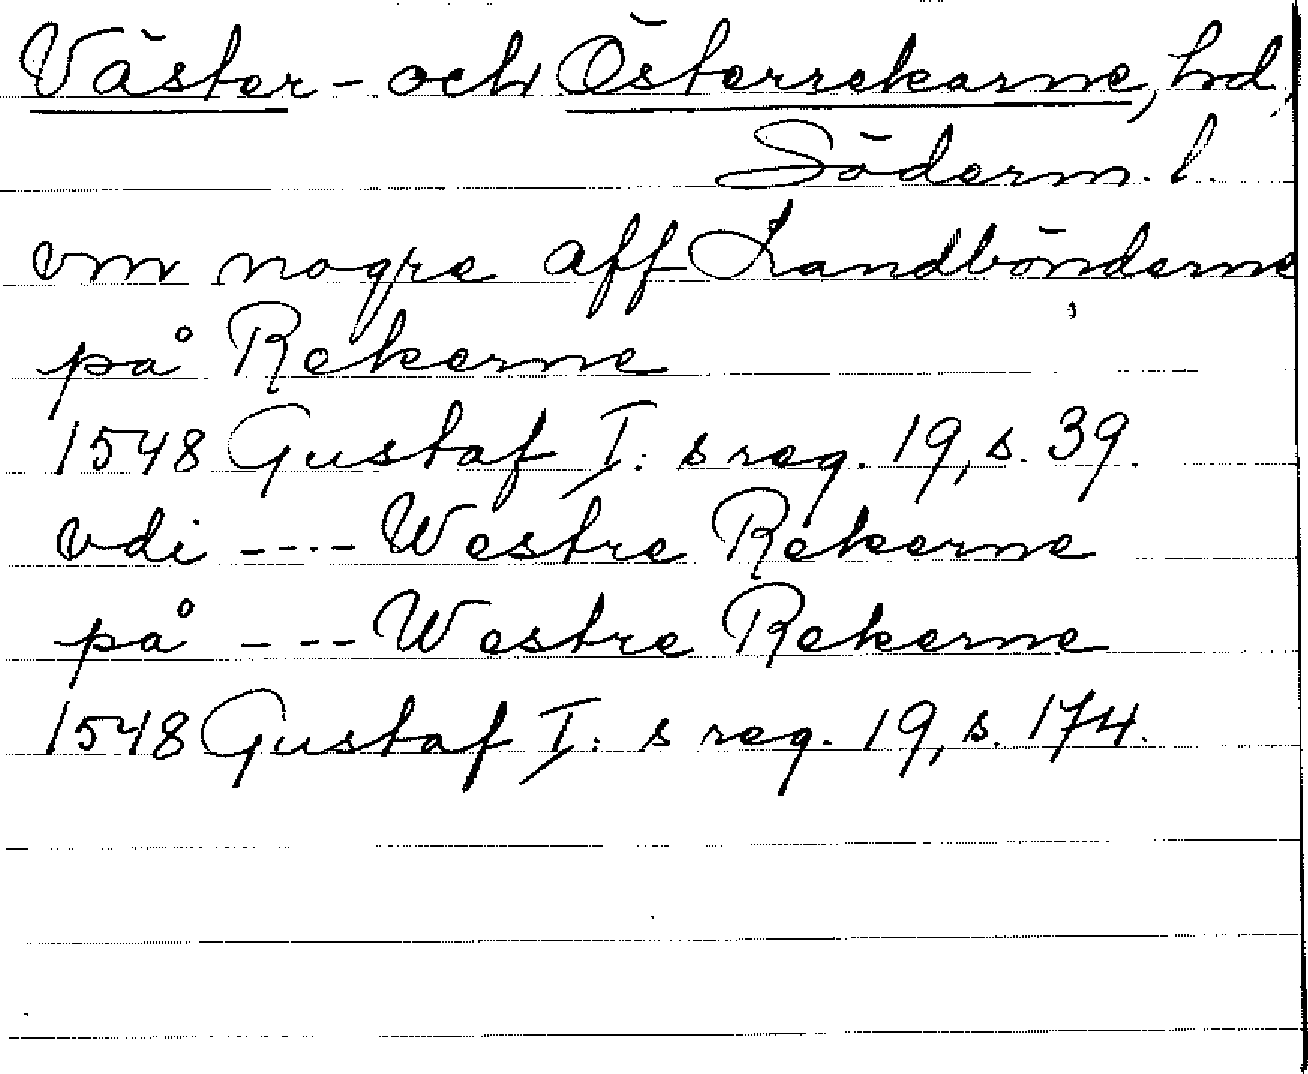 Väster- och Österrekarne, hd,
Söderm. l.
om nogre aff Landbönderne
på Rekerne
1548 Gustaf I: s reg. 19, s. 39.
vdi ---- Westre Rekerne
på --- Westre Rekerne
1548 Gustaf I: s reg. 19, s. 174.